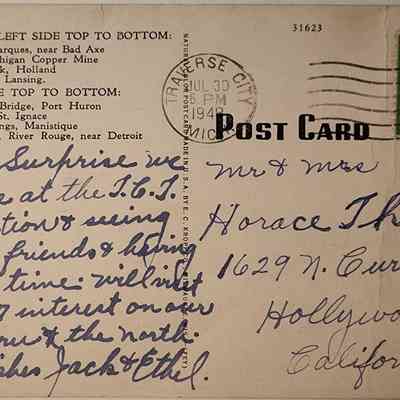 LEFT SIDE TOP TO BOTTOM:
arques, near Bad Axe
higan Copper Mine
k, Holland
Lansing.
E TOP TO BOTTOM:
Bridge, Port Huron
St. Ignace
ngs, Manistique
, River Rouge, near Detroit
31623
TRAVERSE CITY
JUL 30
5 PM
1948
MICH.
POST CARD
Surprise we
e at the T.C.T.
tion & seeing
friends & having
time. will visit
interest on our
ru & the north.
shes Jack & Ethel.
Mr & Mrs
Horace Th
1629 N. Cur
Hollywo
Califor